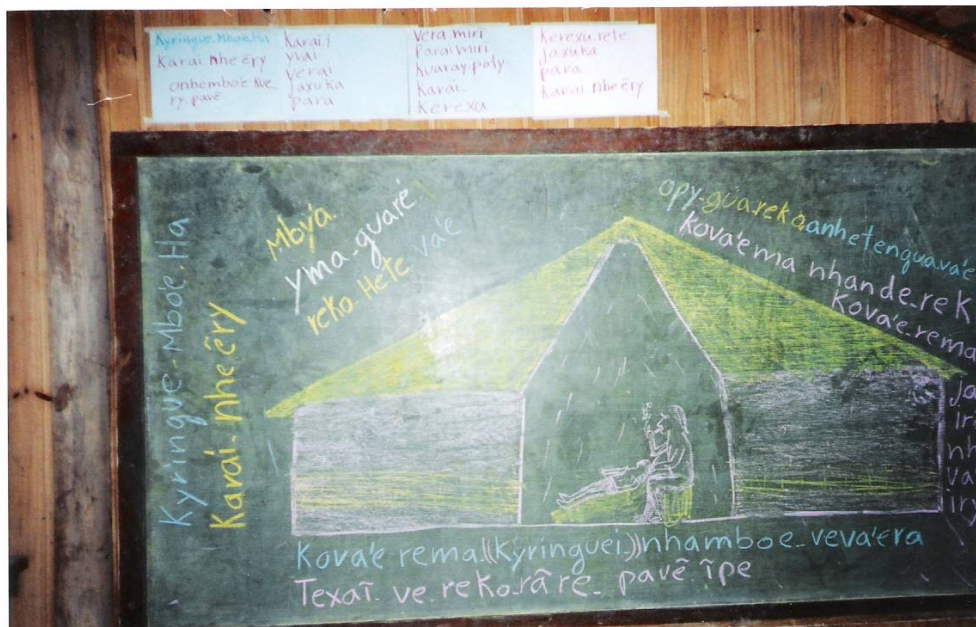 Kyringue.Mboe.Ha
Karai nhe ëry
onhembo'e kue
ry. pavē
Karai. i
yvai
verai
jaxuka
para
vera miri
parai miri
kuaray. poty
Karai.
Kerexa
Kerexu. rete
jaxuka
para
karai. nhe ëry
Kyringue - Mboe. Ha
Karai - nhe ëry
Mbya.
yma - guare'
reko Hete va'e
opy - guareko anhetenguava'e
kova'e ma nhande. re k
Kova'e. rema
ja
nh
va
iry
Kova'e rema ((Kyringuei.)) nhamboe - veva'era
Texaĩ. ve. rekorâre. pavē ĩpe